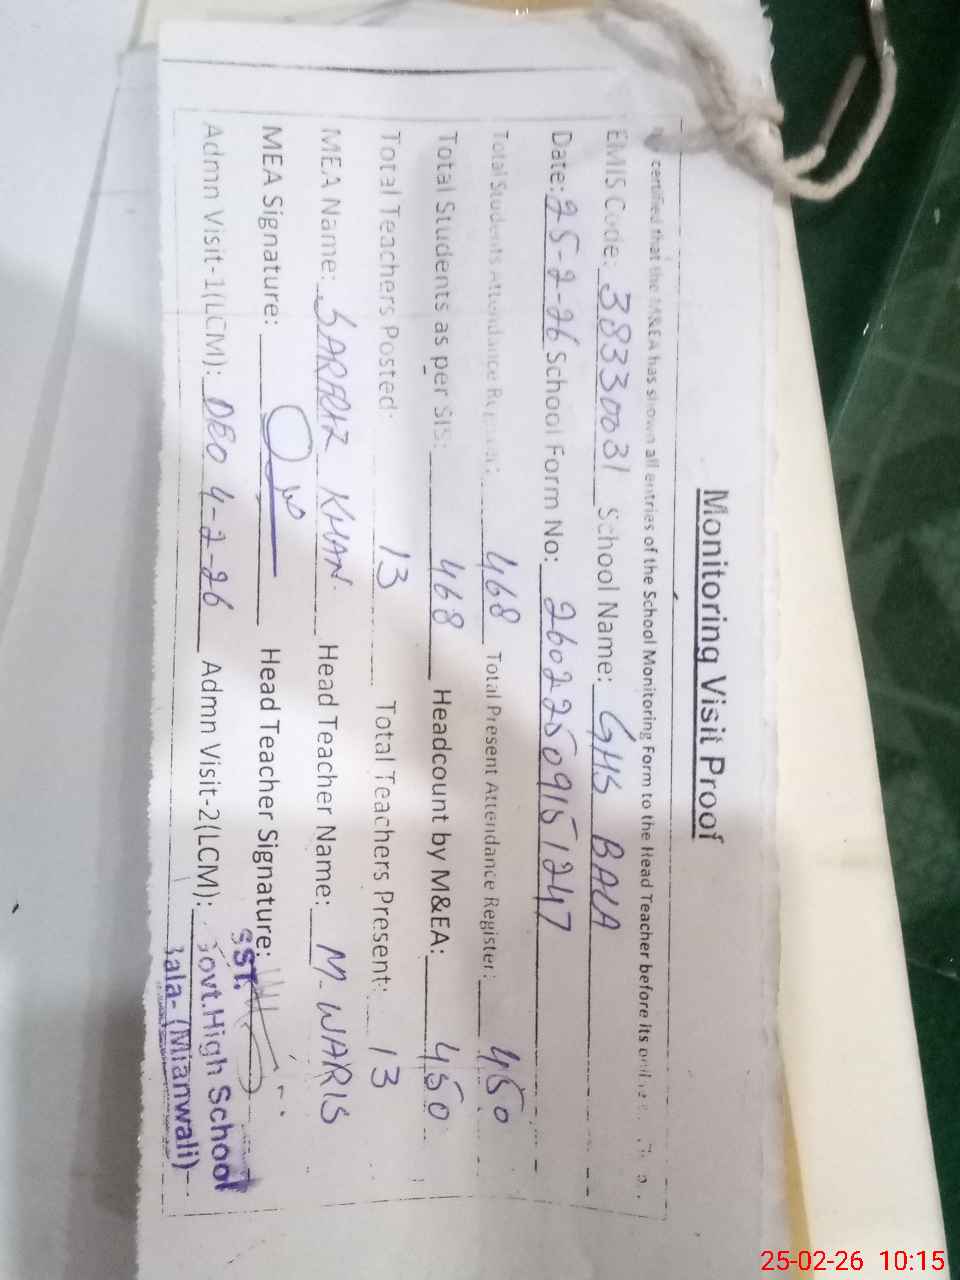 Monitoring Visit Proof
certified that the M&EA has shown all entries of the School Monitoring Form to the Head Teacher before its
EMIS Code: 38330031 School Name: GHS BALA
Date: 25-2-26 School Form No: 26022509151247
Total Students Attendance Register: 468 Total Present Attendance Register: 450
Total Students as per SIS: 468 Headcount by M&EA: 450
Total Teachers Posted: 13 Total Teachers Present: 13
MEA Name: SARARIZ KHAN Head Teacher Name: M. WARIS
MEA Signature: Head Teacher Signature:
SST.
Admn Visit-1(LCM): DEO 4-2-26 Admn Visit-2(LCM):
Govt. High School
Bala- (Mianwali)
25-02-26 10:15